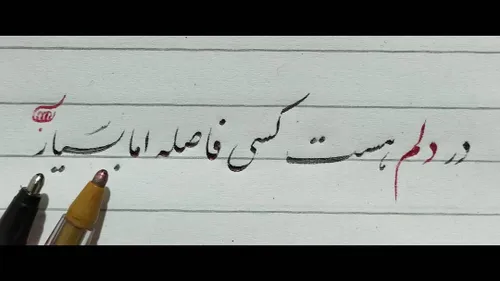 در دلم هست کسی فاصله اما بسیار